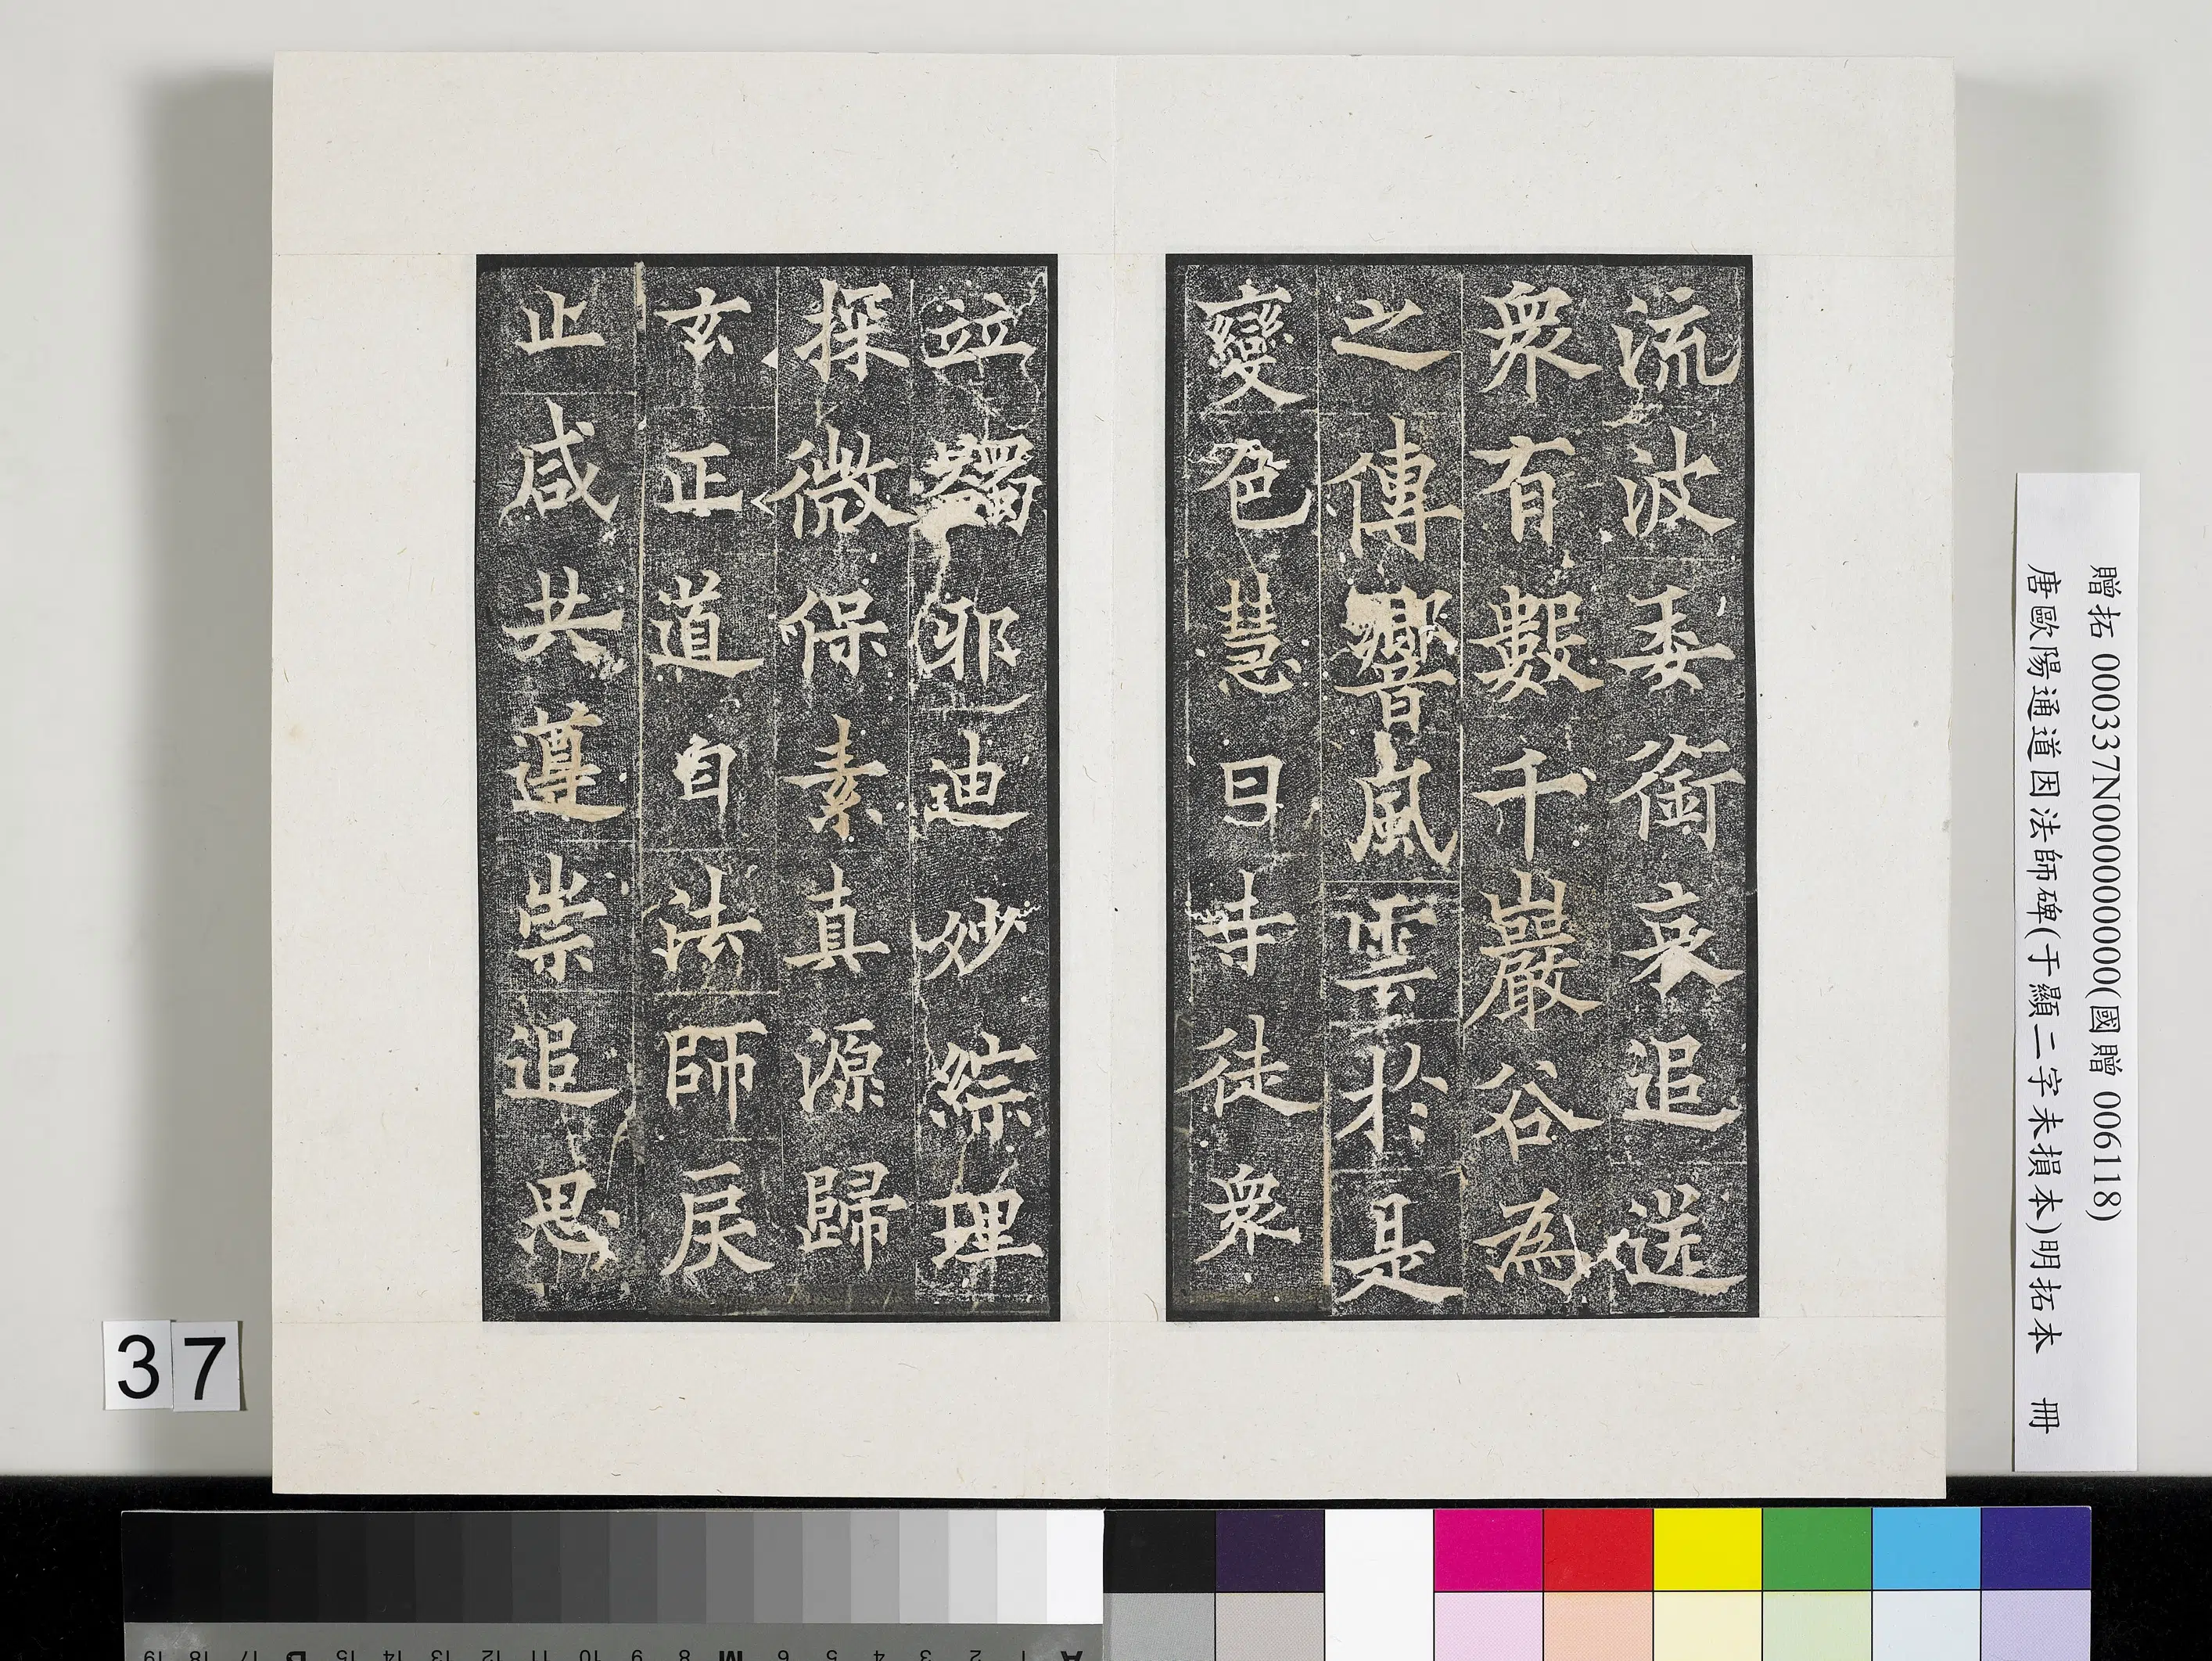 流波委銜哀追送
衆有數千巖谷為
之傳響風雲於是
變色慧日寺徒衆
並蠲邪迪妙綜理
探微保素真源歸
玄正道自法師戾
止咸共遵崇追思
贈拓 000337N000000000(國贈 006118)
唐歐陽通道因法師碑(于顯二字未損本)明拓本 冊
37
A 1 2 3 4 5 6 M 8 9 10 11 12 13 14 15 B 17 18 19